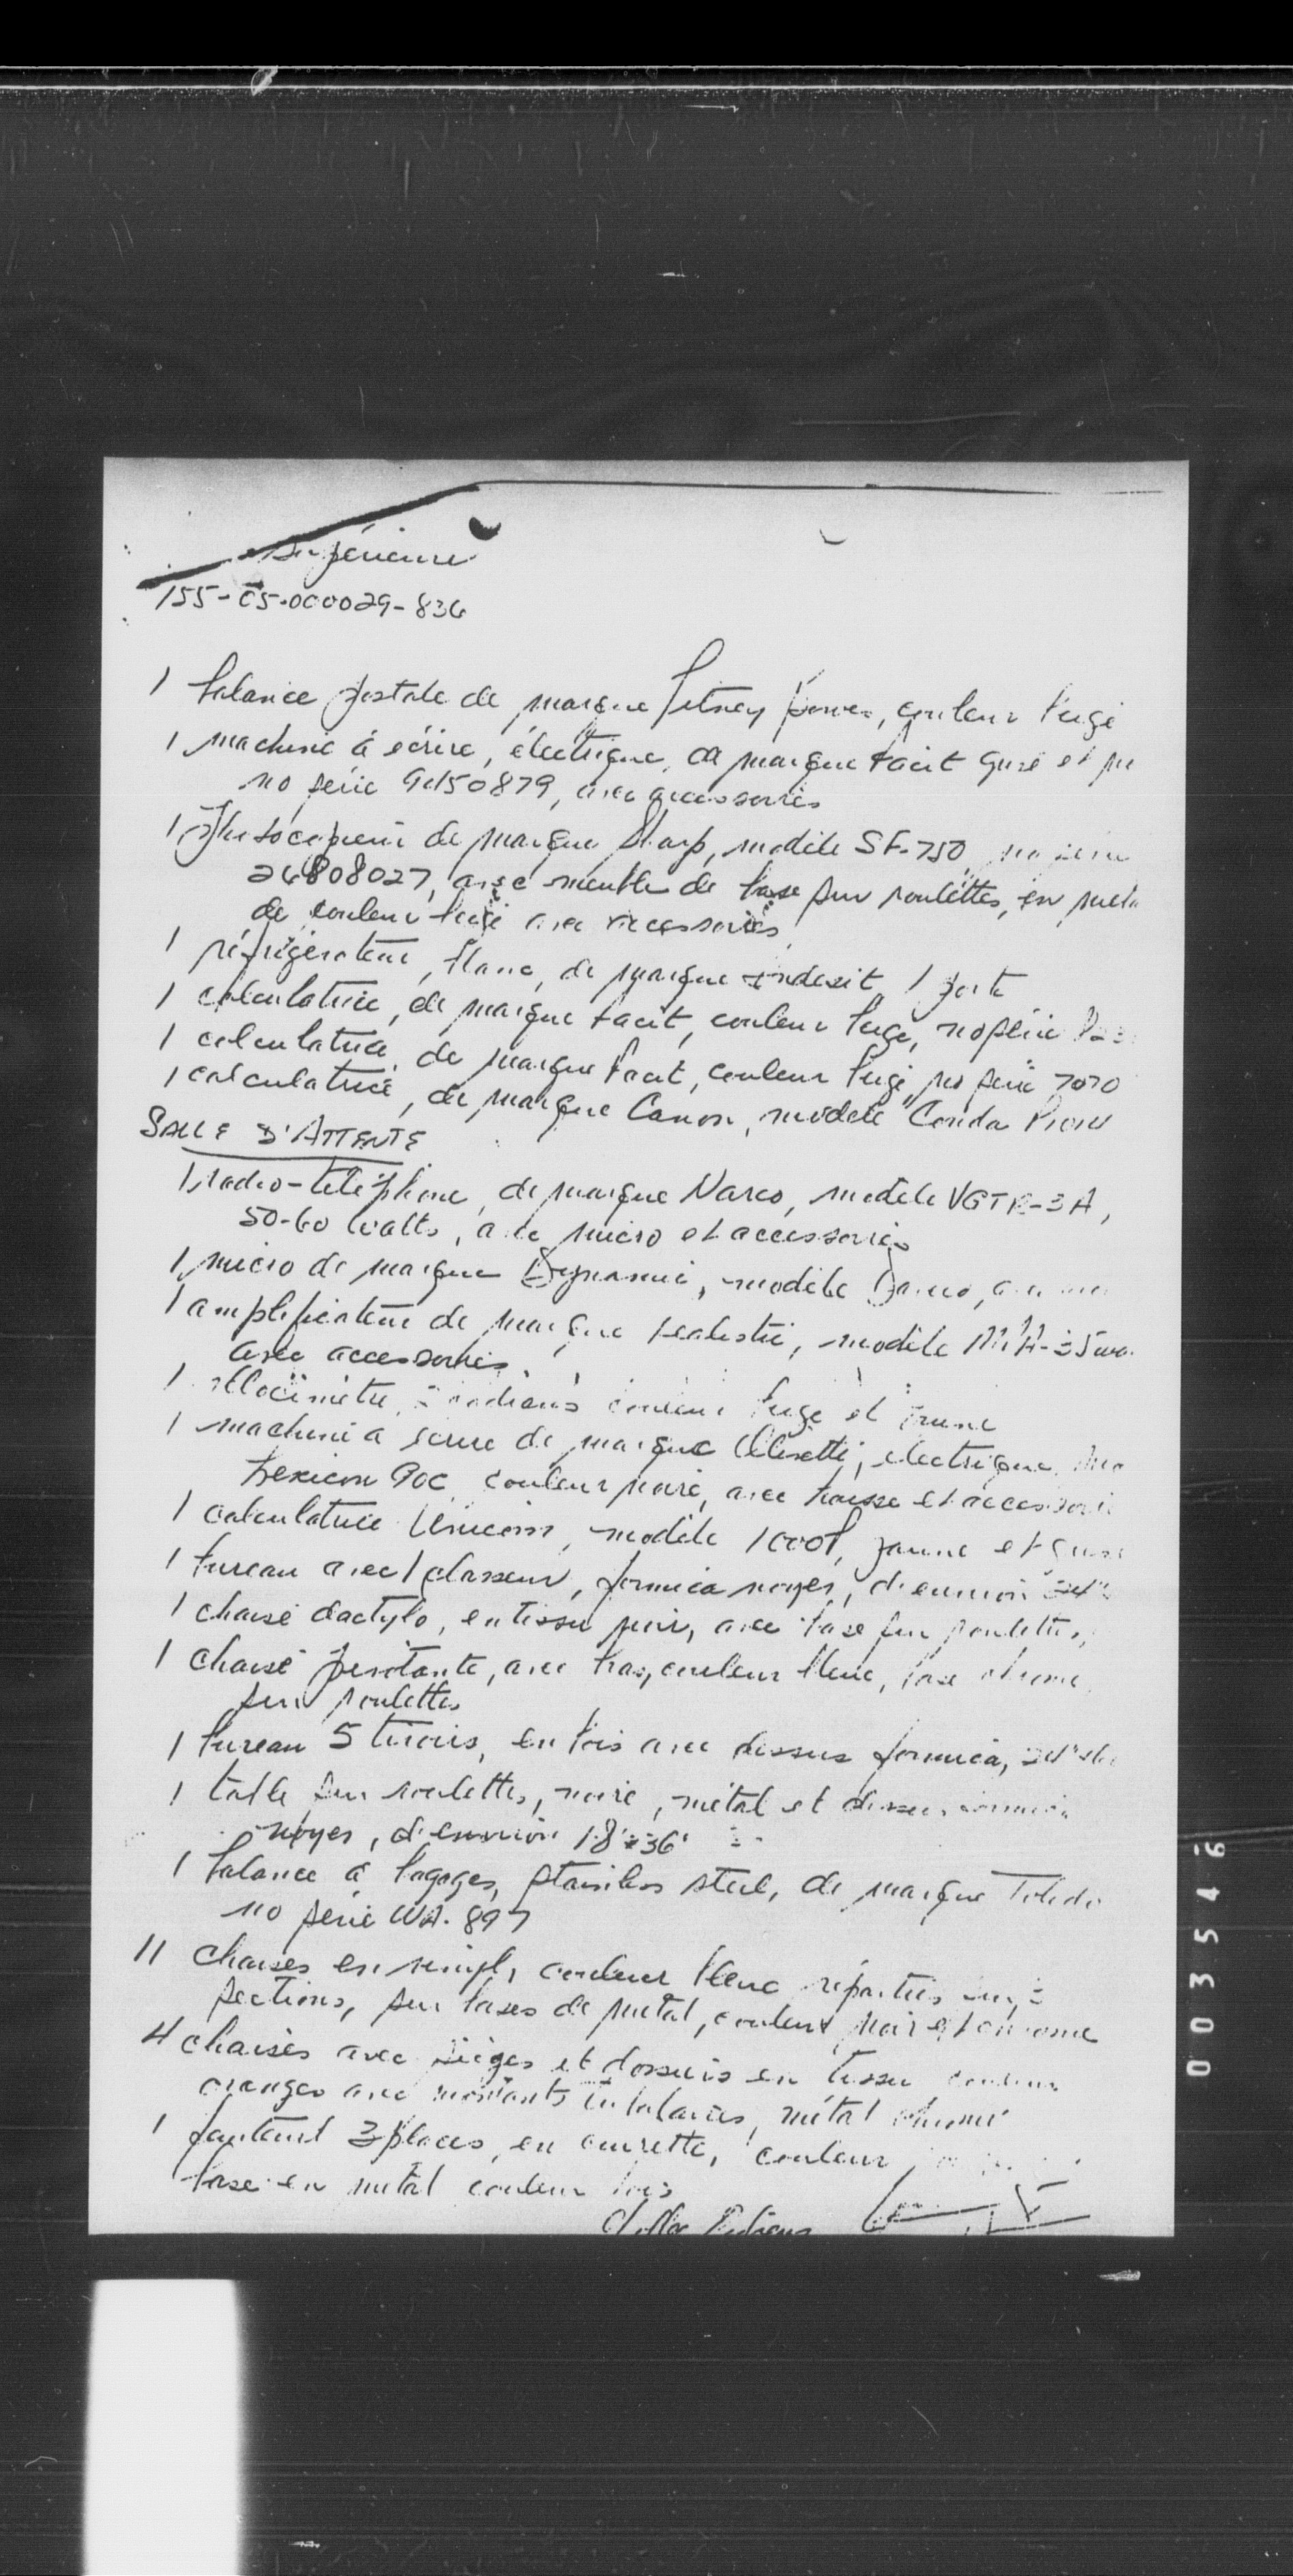 Supérieure
155-05-000029-836
1 balance postale de marque Pitney Bowes, couleur beige
1 machine à écrire, électrique, de marque Facit grise et
no série 9150879, avec accessoires
1 photocopieur de marque Sharp, modèle SF-750, no série
26808027, avec meuble de base sur roulettes, en
de couleur beige avec accessoires
1 réfrigérateur, blanc, de marque Indesit, 1 porte
1 calculatrice, de marque Facit, couleur beige, no série
1 calculatrice, de marque Facit, couleur beige, no série 7070
1 calculatrice, de marque Canon, modèle Canola
SALLE D'ATTENTE
1 radio-téléphone, de marque Narco, modèle VGTR-3A,
50-60 watts, avec micro et accessoires
1 micro de marque Dynamic, modèle
1 amplificateur de marque Realistic, modèle MPA-35
avec accessoires
1 cadrans couleur beige et brune
1 machine à écrire de marque Olivetti, électrique,
Lexicon 90C, couleur noire, avec housse et accessoires
1 calculatrice Unicom, modèle 1000P, jaune et grise
1 bureau avec 1 classeur, formica noyer, d'environ
1 chaise dactylo, en tissu noir, avec base sur roulettes,
1 chaise pivotante, avec bras, couleur bleue, base chrome
sur roulettes
1 bureau 5 tiroirs, en bois avec dessus formica,
1 table sur roulettes, noire, métal et dessus formica
noyer, d'environ 18"x36"
1 balance à bagages, stainless steel, de marque Toledo
no série WA-897
11 chaises en vinyl, couleur bleue réparties sur 2
sections, sur bases de métal, couleur noir et chrome
4 chaises avec sièges et dossiers en tissu couleur
oranges avec montants tubulaires, métal chromé
1 fauteuil 3 places, en cuirette, couleur
base en métal couleur bois
003546